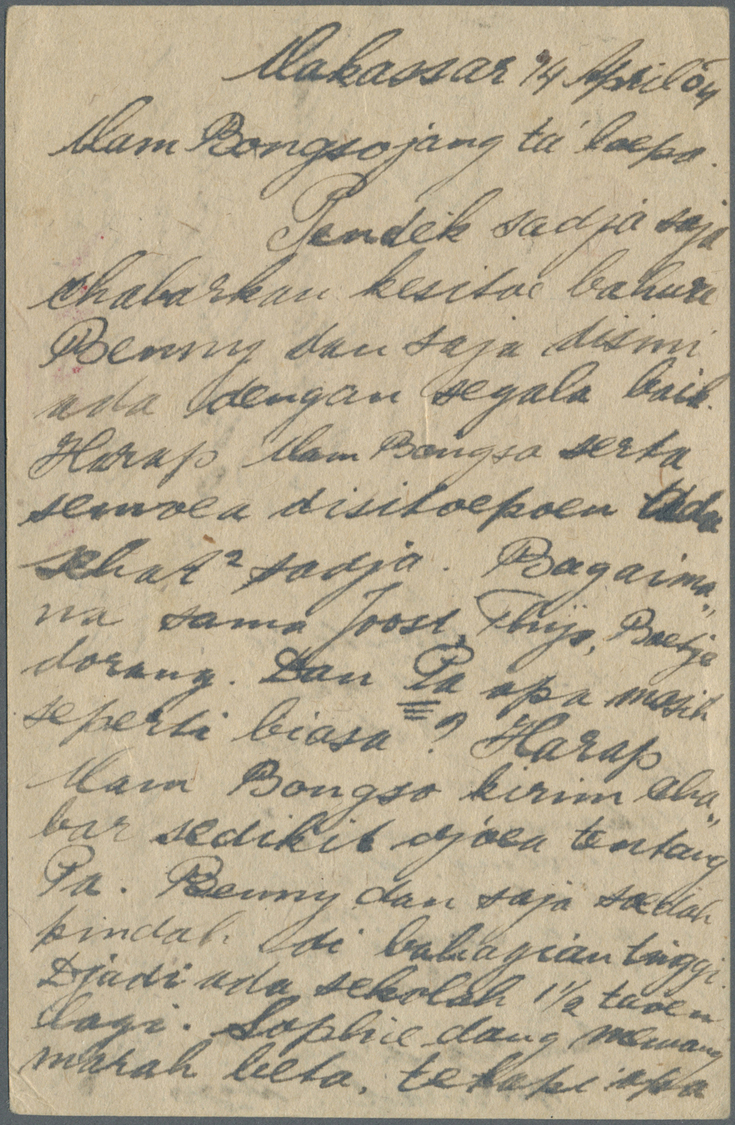 Makassar 14 April 04
Mam Bongso jang ta' loepa.
Pendek sadja saja
chabarkan kesitoe bahwa
Benny dan saja disini
ada dengan segala baik.
Harap Mam Bongso serta
semoea disitoepoen ada
sehat² sadja. Bagaima„
na sama Joost, Thijs, Boetje
dorang. Dan Pa apa masih
seperti biasa? Harap
Mam Bongso kirim cha„
bar sedikit djoea tentang
Pa. Benny dan saja soedah
pindah di bahagian tinggi.
Djadi ada sekolah 1½ taoen
lagi. Sophie dang
marah beta, tetapi apa